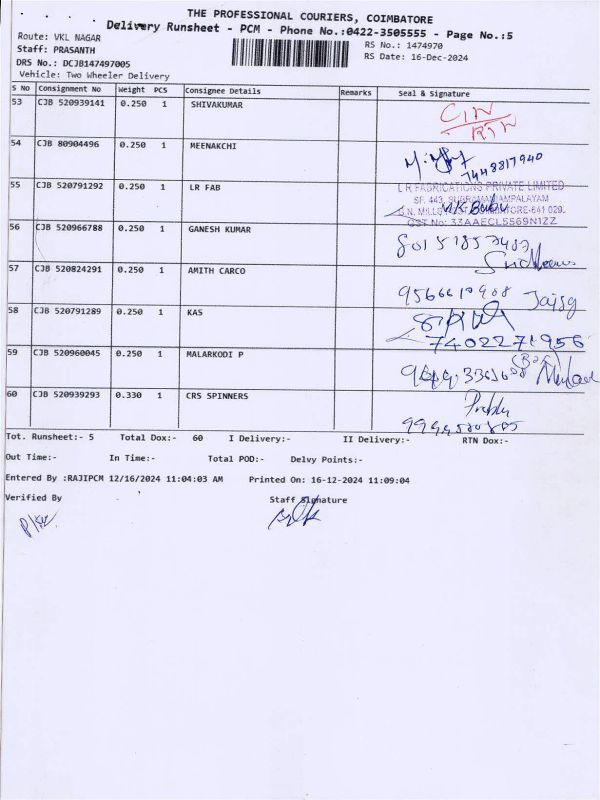 THE PROFESSIONAL COURIERS, COIMBATORE
Delivery Runsheet - PCM - Phone No.:0422-3505555 - Page No.:5
Route: VKL NAGAR
RS No.: 1474970
Staff: PRASANTH
RS Date: 16-Dec-2024
DRS No.: DCJB147497005
Vehicle: Two Wheeler Delivery
S No Consignment No Weight PCS Consignee Details Remarks Seal & Signature
53 CJB 520939141 0.250 1 SHIVAKUMAR
54 CJB 80904496 0.250 1 MEENAKCHI
7448817940
55 CJB 520791292 0.250 1 LR FAB
L R FABRICATIONS PRIVATE LIMITED
SF. 443, SUBRAMANIAMPALAYAM
G.N. MILLS POST, COIMBATORE-641 029.
GST No: 33AAECL5569N1ZZ
56 CJB 520966788 0.250 1 GANESH KUMAR
57 CJB 520824291 0.250 1 AMITH CARCO
58 CJB 520791289 0.250 1 KAS
7402271956
59 CJB 520960045 0.250 1 MALARKODI P
60 CJB 520939293 0.330 1 CRS SPINNERS
Tot. Runsheet:- 5 Total Dox:- 60 I Delivery:- II Delivery:- RTN Dox:-
Out Time:- In Time:- Total POD:- Delvy Points:-
Entered By :RAJIPCM 12/16/2024 11:04:03 AM Printed On: 16-12-2024 11:09:04
Verified By Staff Signature